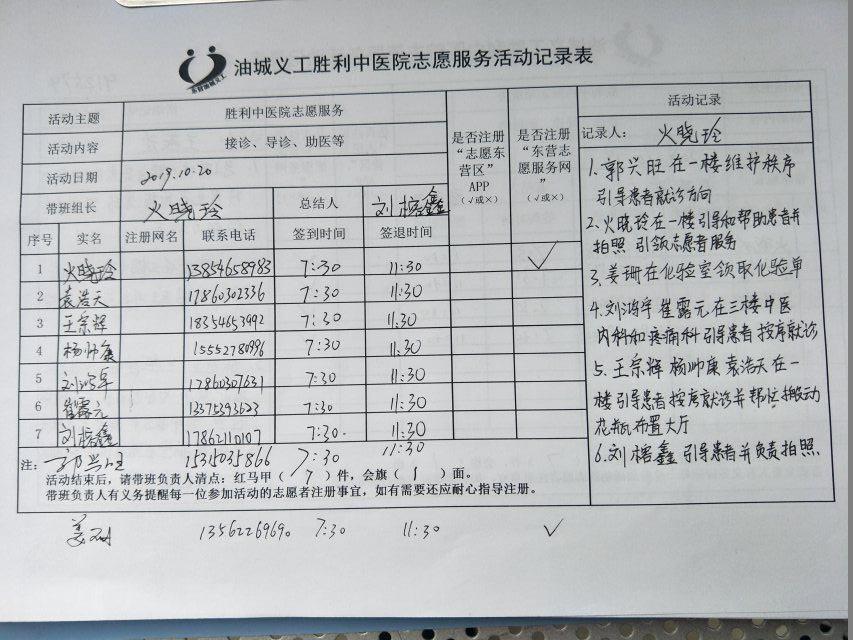 油城义工胜利中医院志愿服务活动记录表
东营油城义工
活动主题 胜利中医院志愿服务
活动内容 接诊、导诊、助医等
活动日期 2019.10.20
带班组长 火晓玲 总结人 刘榕鑫
是否注册“志愿东营区”APP（√或×）
是否注册“东营志愿服务网”（√或×）
序号 实名 注册网名 联系电话 签到时间 签退时间
1 火晓玲 13854658983 7:30 11:30 √
2 袁浩天 17860302336 7:30 11:30
3 王宗辉 18354653992 7:30 11:30
4 杨帅康 15552780996 7:30 11:30
5 刘鸿宇 17860307631 7:30 11:30
6 崔露元 13375393623 7:30 11:30
7 刘榕鑫 17862110107 7:30 11:30
郭兴旺 15315035866 7:30 11:30
注：
活动结束后，请带班负责人清点：红马甲（7）件，会旗（1）面。
带班负责人有义务提醒每一位参加活动的志愿者注册事宜，如有需要还应耐心指导注册。
姜珊 13562269690 7:30 11:30 √
活动记录
记录人：火晓玲
1.郭兴旺在一楼维护秩序
引导患者就诊方向
2.火晓玲在一楼引导和帮助患者并
拍照 引领志愿者服务
3.姜珊在化验室领取化验单
4.刘鸿宇 崔露元在三楼中医
内科和疼痛科引导患者按序就诊
5.王宗辉 杨帅康 袁浩天在一
楼引导患者按序就诊并帮忙搬动
花瓶布置大厅
6.刘榕鑫 引导患者并负责拍照